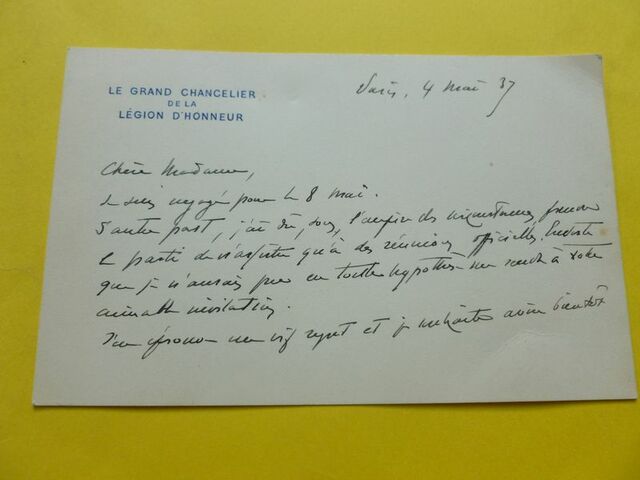 LE GRAND CHANCELIER
DE LA
LÉGION D'HONNEUR
Paris, 4 mai 37
Chère Madame,
Je suis engagé pour le 8 mai.
D'autre part, j'ai dû, sous l'empire des circonstances, prendre
le parti de n'assister qu'à des réunions officielles.
que je n'aurais pu en toute hypothèse me rendre à votre
aimable invitation.
J'en éprouve un vif regret et je souhaite avoir bientôt